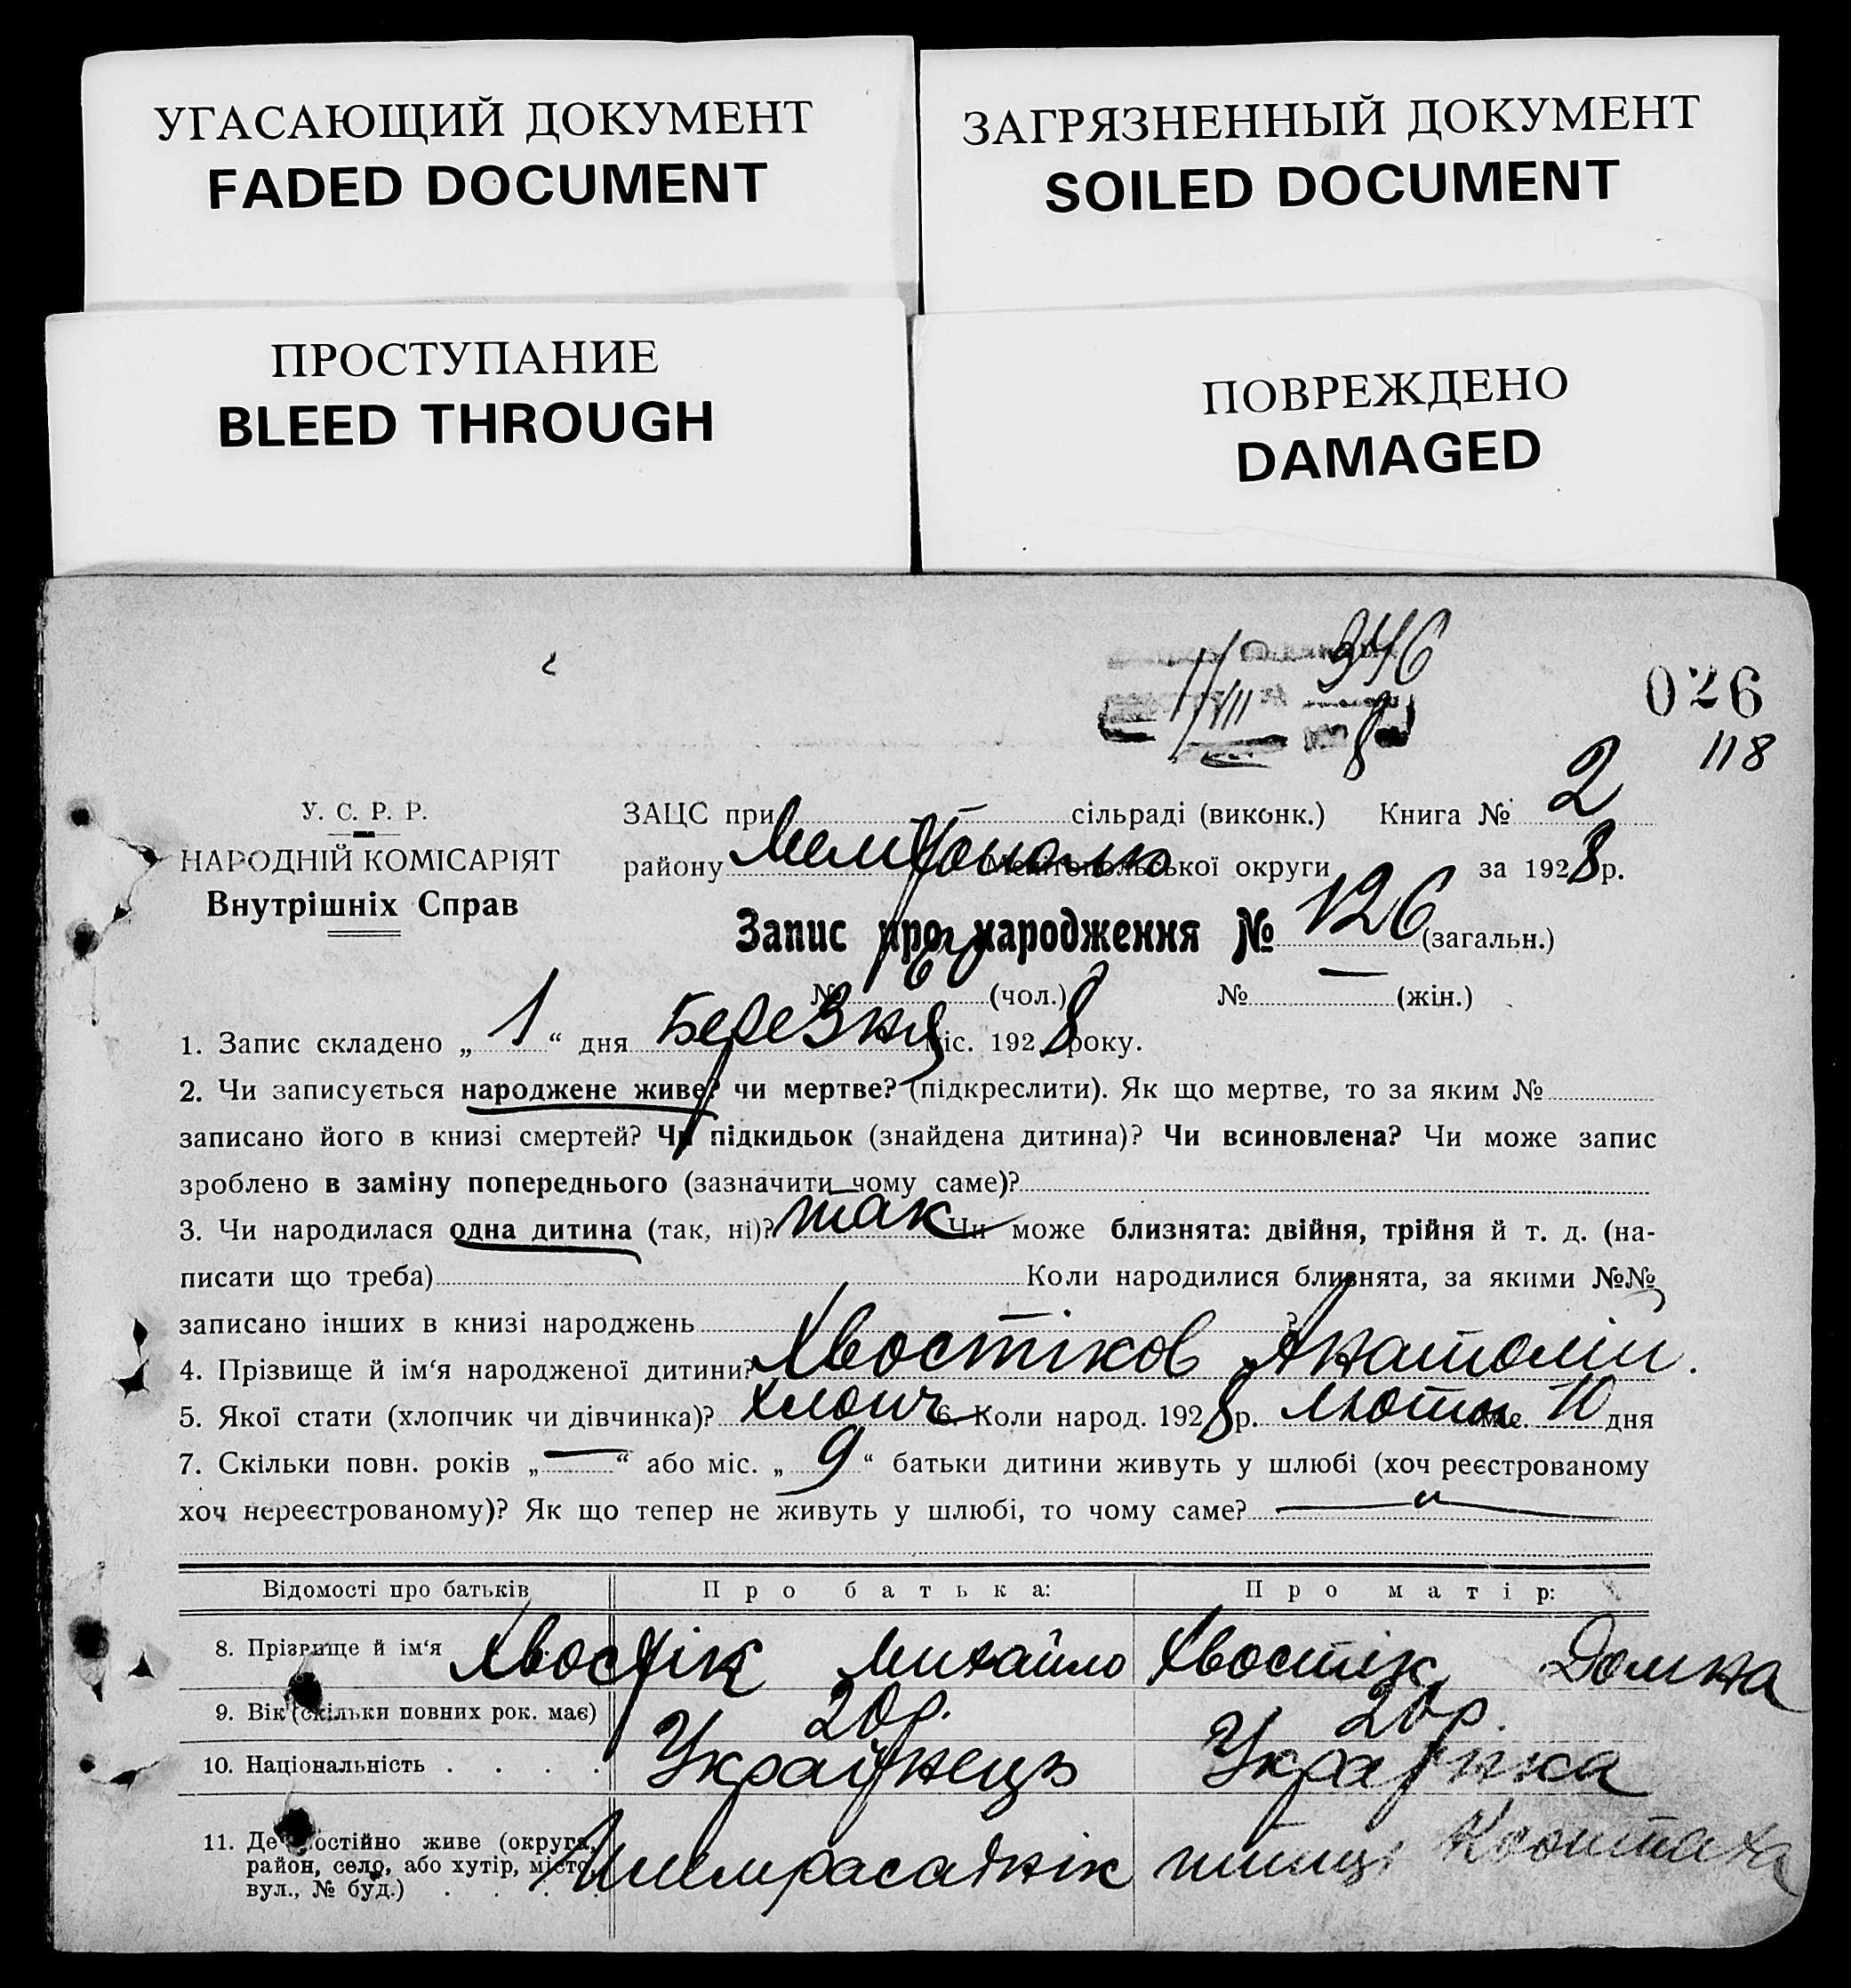 УГАСАЮЩИЙ ДОКУМЕНТ
FADED DOCUMENT
ЗАГРЯЗНЕННЫЙ ДОКУМЕНТ
SOILED DOCUMENT
ПРОСТУПАНИЕ
BLEED THROUGH
ПОВРЕЖДЕНО
DAMAGED
346
11/VII
8
026
118
У. С. Р. Р.
НАРОДНІЙ КОМІСАРІЯТ
Внутрішніх Справ
ЗАЦС при сільраді (виконк.) Книга № 2
району Мелітополь Мелітопольської округи за 1928 р.
Запис про народження № 126 (загальн.)
№ (чол.) № — (жін.)
1. Запис складено „ 1 “ дня Березня міс. 1928 року.
2. Чи записується народжене живе? чи мертве? (підкреслити). Як що мертве, то за яким №
записано його в книзі смертей? Чи підкидьок (знайдена дитина)? Чи всиновлена? Чи може запис
зроблено в заміну попереднього (зазначити чому саме)?
3. Чи народилася одна дитина (так, ні)? так Чи може близнята: двійня, трійня й т. д. (на-
писати що треба) Коли народилися близнята, за якими №№
записано інших в книзі народжень ?
4. Прізвище й ім‘я народженої дитини? Хвостіков Анатолій.
5. Якої стати (хлопчик чи дівчинка)? хлопч 6. Коли народ. 1928 р. Лютн міс. 10 дня
7. Скільки повн. років „ — “ або міс. „ 9 “ батьки дитини живуть у шлюбі (хоч реєстрованому
хоч нереєстрованому)? Як що тепер не живуть у шлюбі, то чому саме? —
Відомості про батьків Про батька: Про матір:
8. Прізвище й ім‘я Хвостік Михайло Хвостік Домна
9. Вік (скільки повних рок. має) 20 р. 20 р.
10. Національність . . . . Українець Українка
11. Де постійно живе (округа,
район, село, або хутір, місто,
вул., № буд.) . . . .